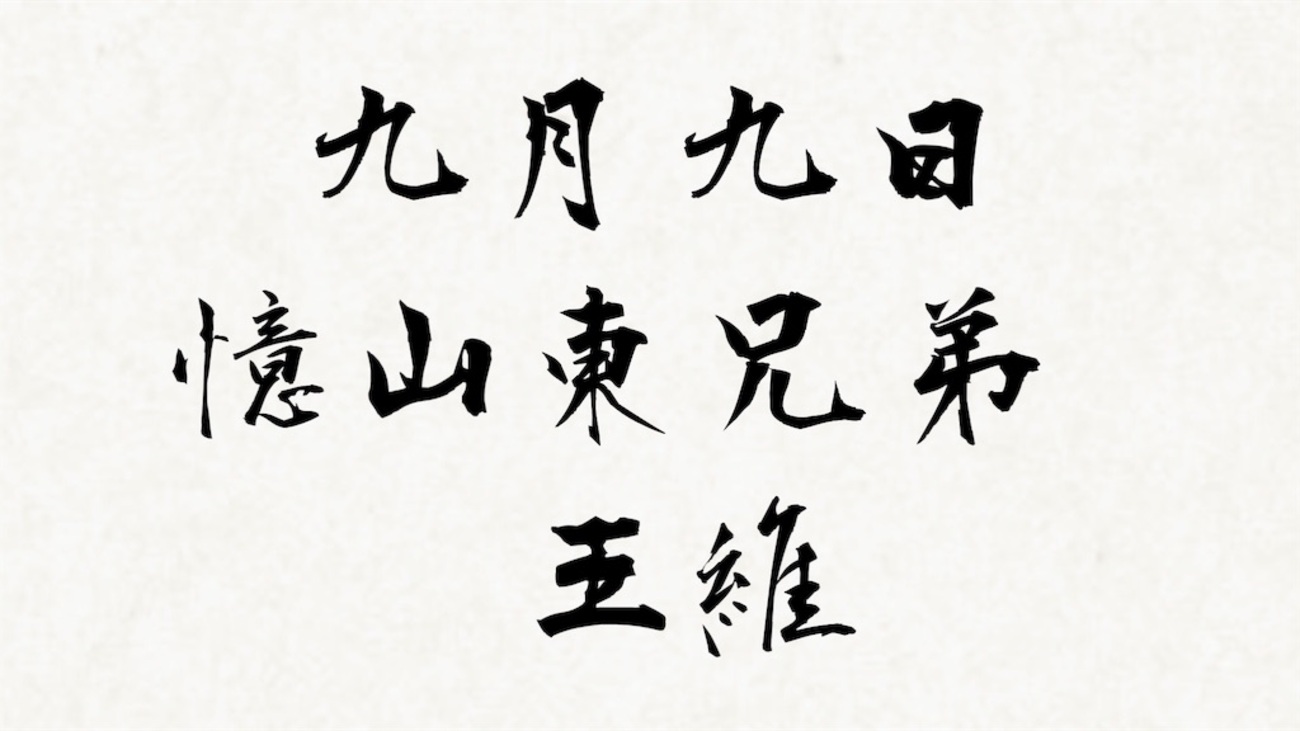 九月九日
憶山東兄弟
王維